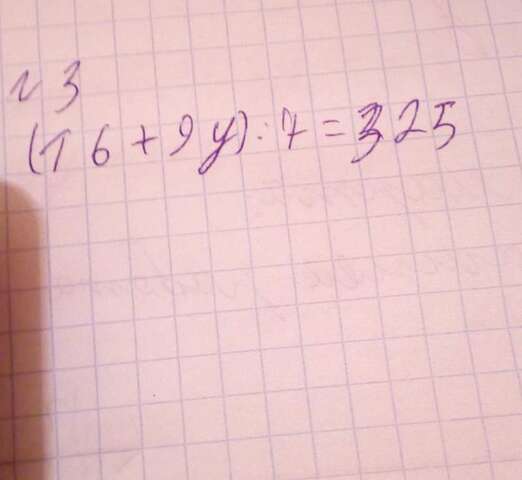 №3
(16+9y):7=325